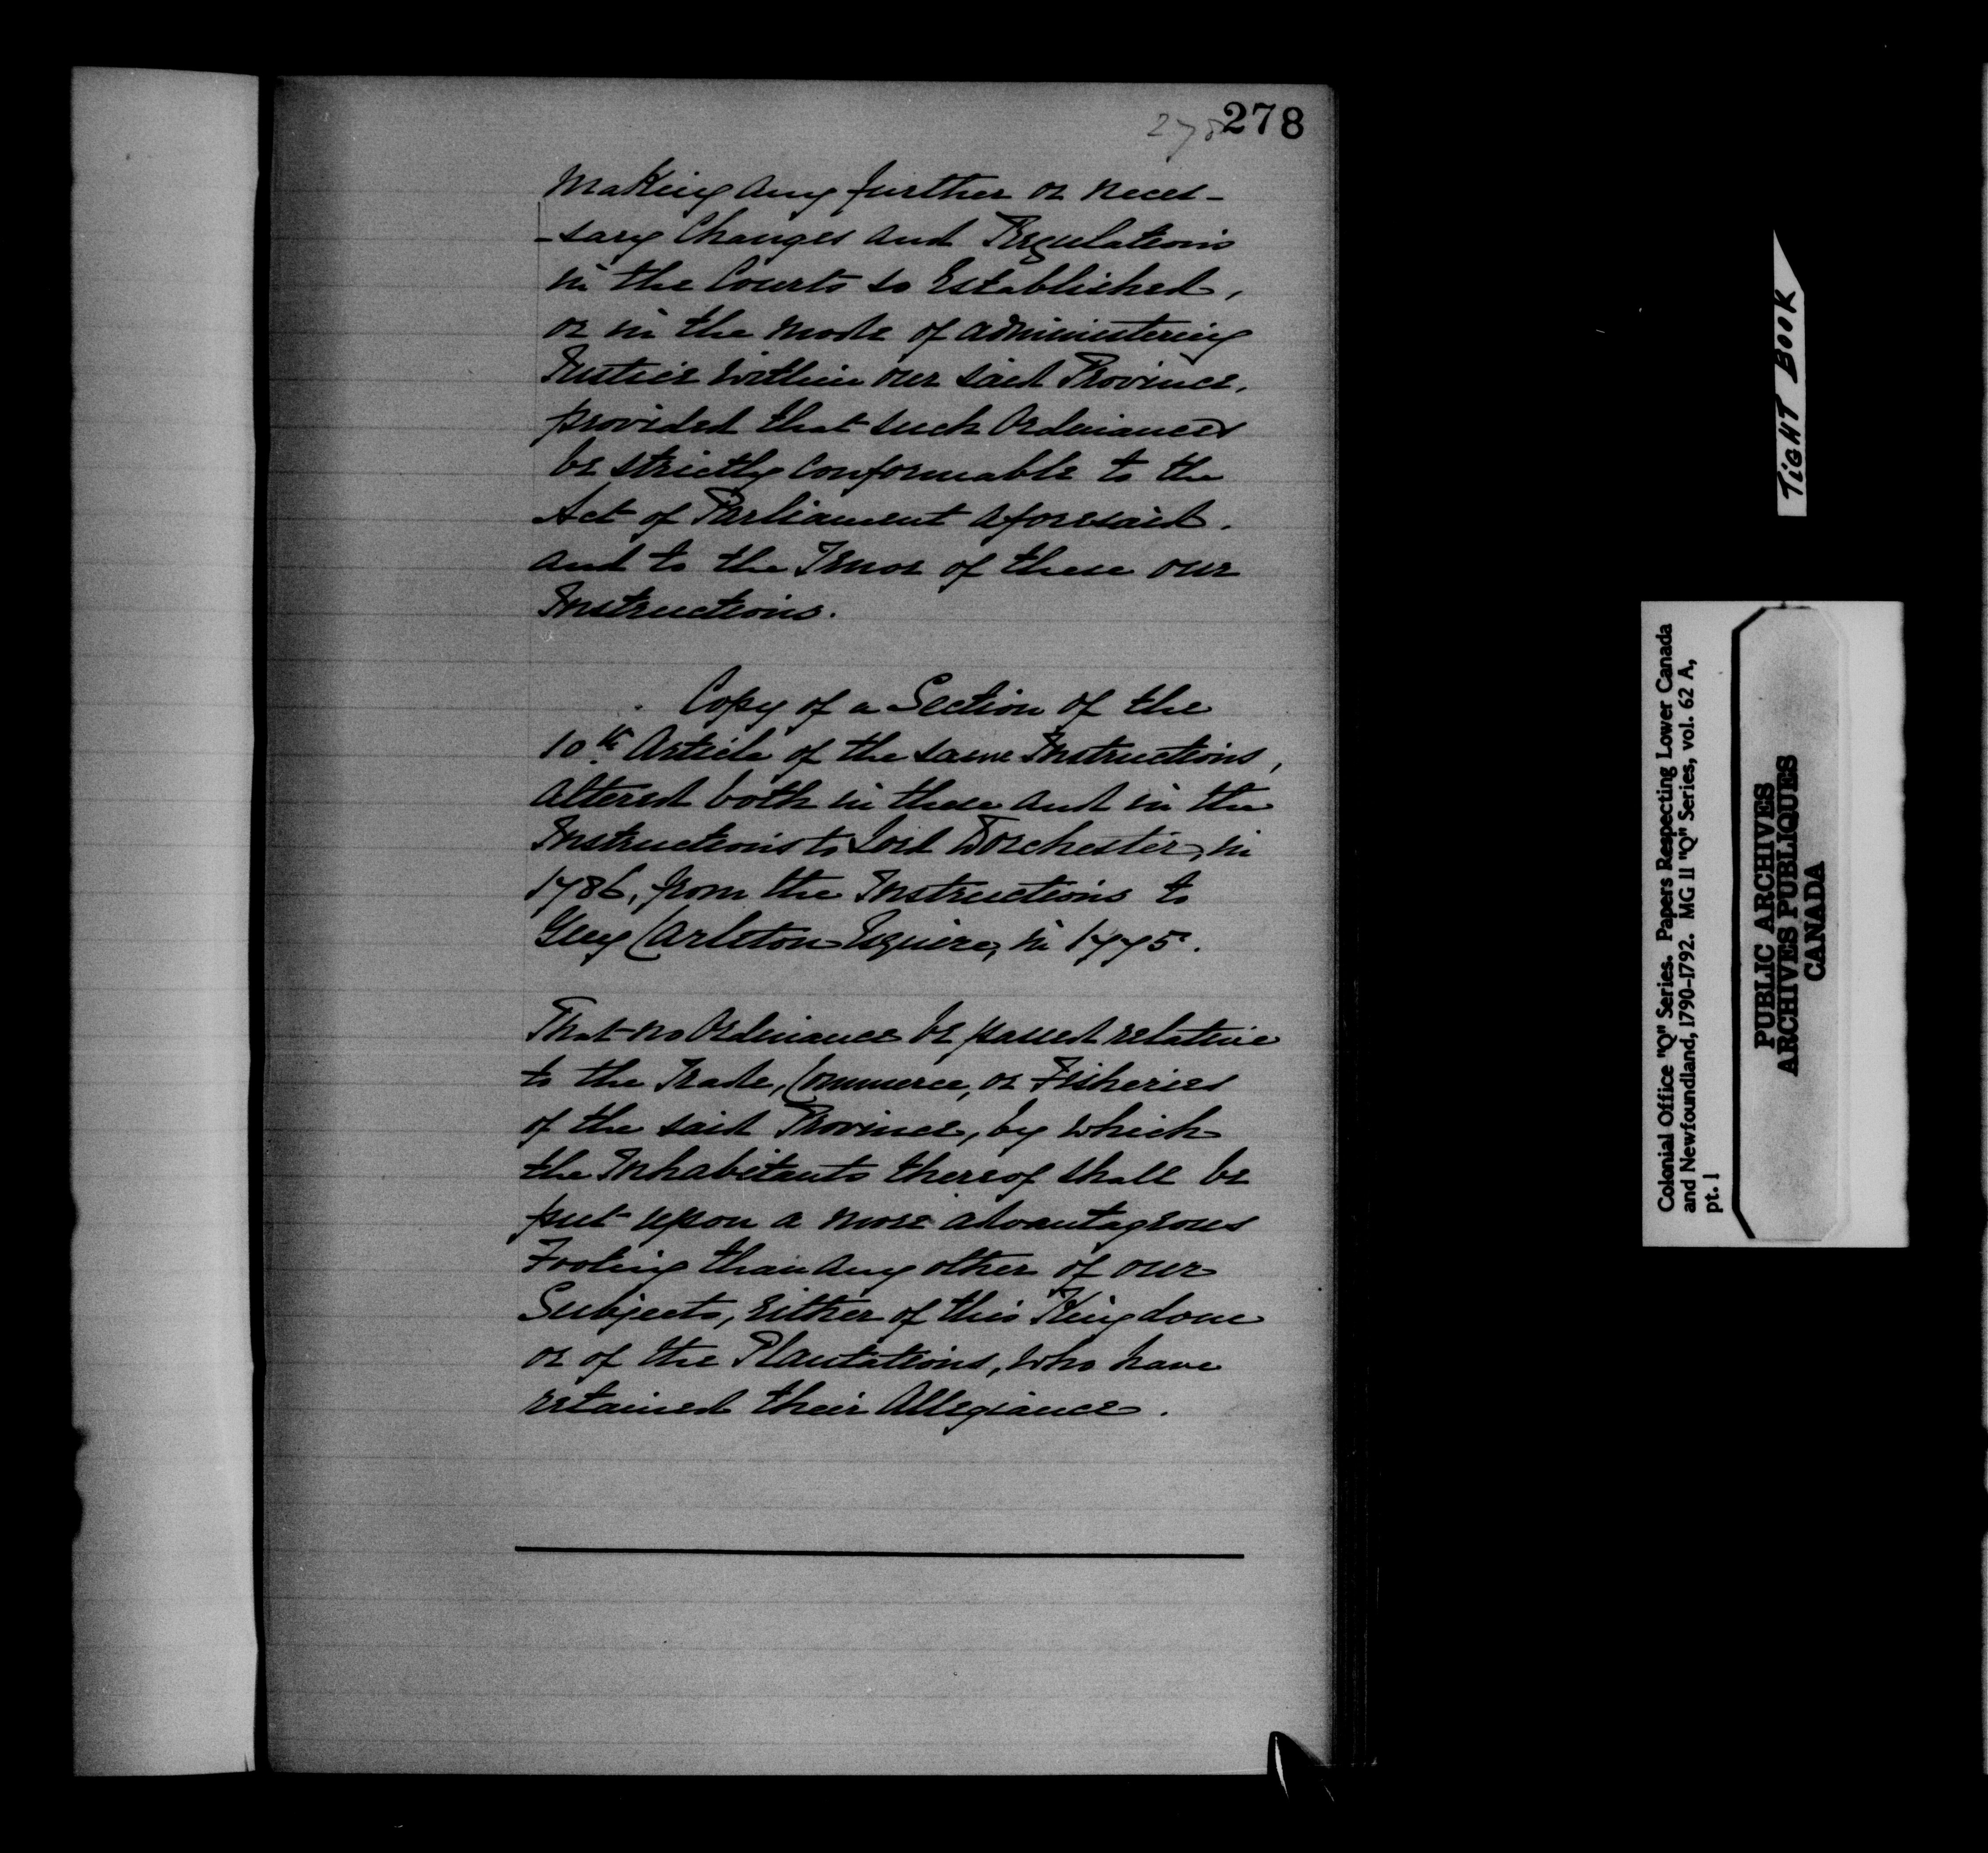 278 278
Making any further or neces-
-sary Changes and Regulations
in the Courts so Established,
or in the mode of administering
Justice within our said Province,
provided that such Ordinances
be strictly Conformable to the
Act of Parliament aforesaid.
and to the Tenor of these our
Instructions.
Copy of a Section of the
10th Article of the same Instructions,
altered both in these and in the
Instructions to Lord Dorchester, in
1786, from the Instructions to
Guy Carleton Esquire, in 1775.
That no Ordinance be passed relative
to the Trade, Commerce, or Fisheries
of the said Province, by which
the Inhabitants thereof shall be
put upon a more advantageous
Footing than any other of our
Subjects, either of this Kingdom
or of the Plantations, who have
retained their Allegiance.
TIGHT BOOK
Colonial Office "Q" Series. Papers Respecting Lower Canada
and Newfoundland, 1790-1792. MG 11 "Q" Series, vol. 62 A,
pt. 1
PUBLIC ARCHIVES
ARCHIVES PUBLIQUES
CANADA